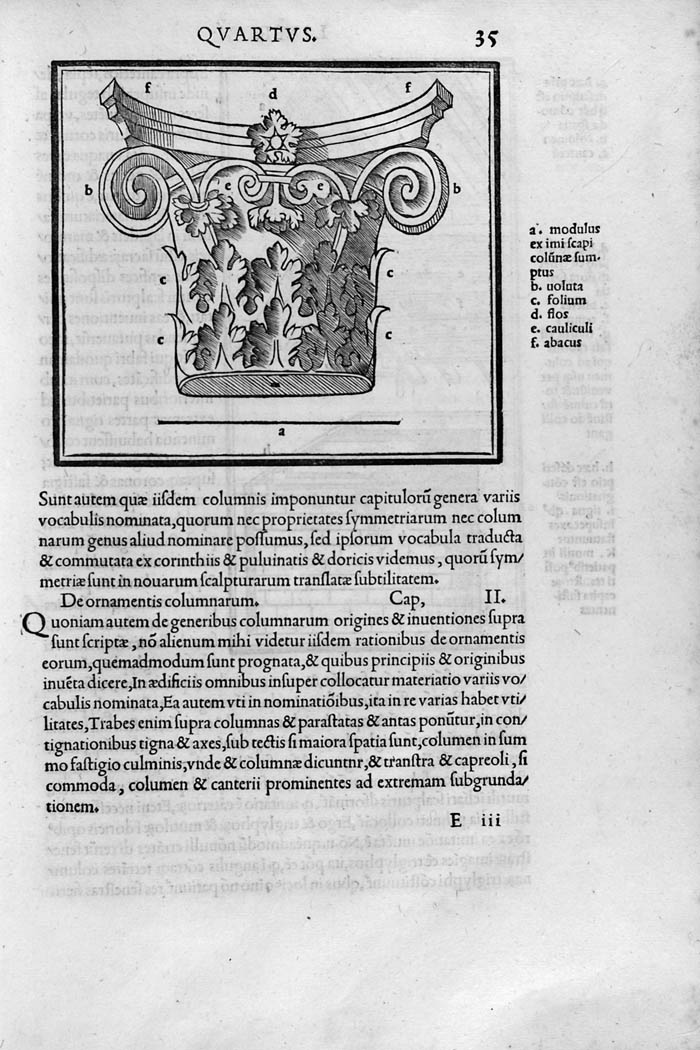 QVARTVS.
35
f
d
f
b
e
e
b
c
c
c
c
a
a. modulus
ex imi ſcapi
colũnæ ſum-
ptus
b. uoluta
c. folium
d. flos
e. cauliculi
f. abacus
Sunt autem quæ iiſdem columnis imponuntur capitulorũ genera variis
vocabulis nominata,quorum nec proprietates ſymmetriarum nec colum
narum genus aliud nominare poſſumus, ſed ipſorum vocabula traducta
& commutata ex corinthiis & puluinatis & doricis videmus, quorũ ſym/
metriæ ſunt in nouarum ſcalpturarum tranſlatæ ſubtilitatem.
De ornamentis columnarum. Cap, II.
Quoniam autem de generibus columnarum origines & inuentiones ſupra
ſunt ſcriptæ, nõ alienum mihi videtur iiſdem rationibus de ornamentis
eorum,quemadmodum ſunt prognata,& quibus principiis & originibus
inuẽta dicere,In ædificiis omnibus inſuper collocatur materiatio variis vo/
cabulis nominata,Ea autem vti in nominatiõibus,ita in re varias habet vti/
litates,Trabes enim ſupra columnas & paraſtatas & antas ponũtur,in con/
tignationibus tigna & axes,ſub tectis ſi maiora ſpatia ſunt,columen in ſum
mo faſtigio culminis,vnde & columnæ dicuntnr,& tranſtra & capreoli, ſi
commoda, columen & canterii prominentes ad extremam ſubgrunda/
tionem.
E iii